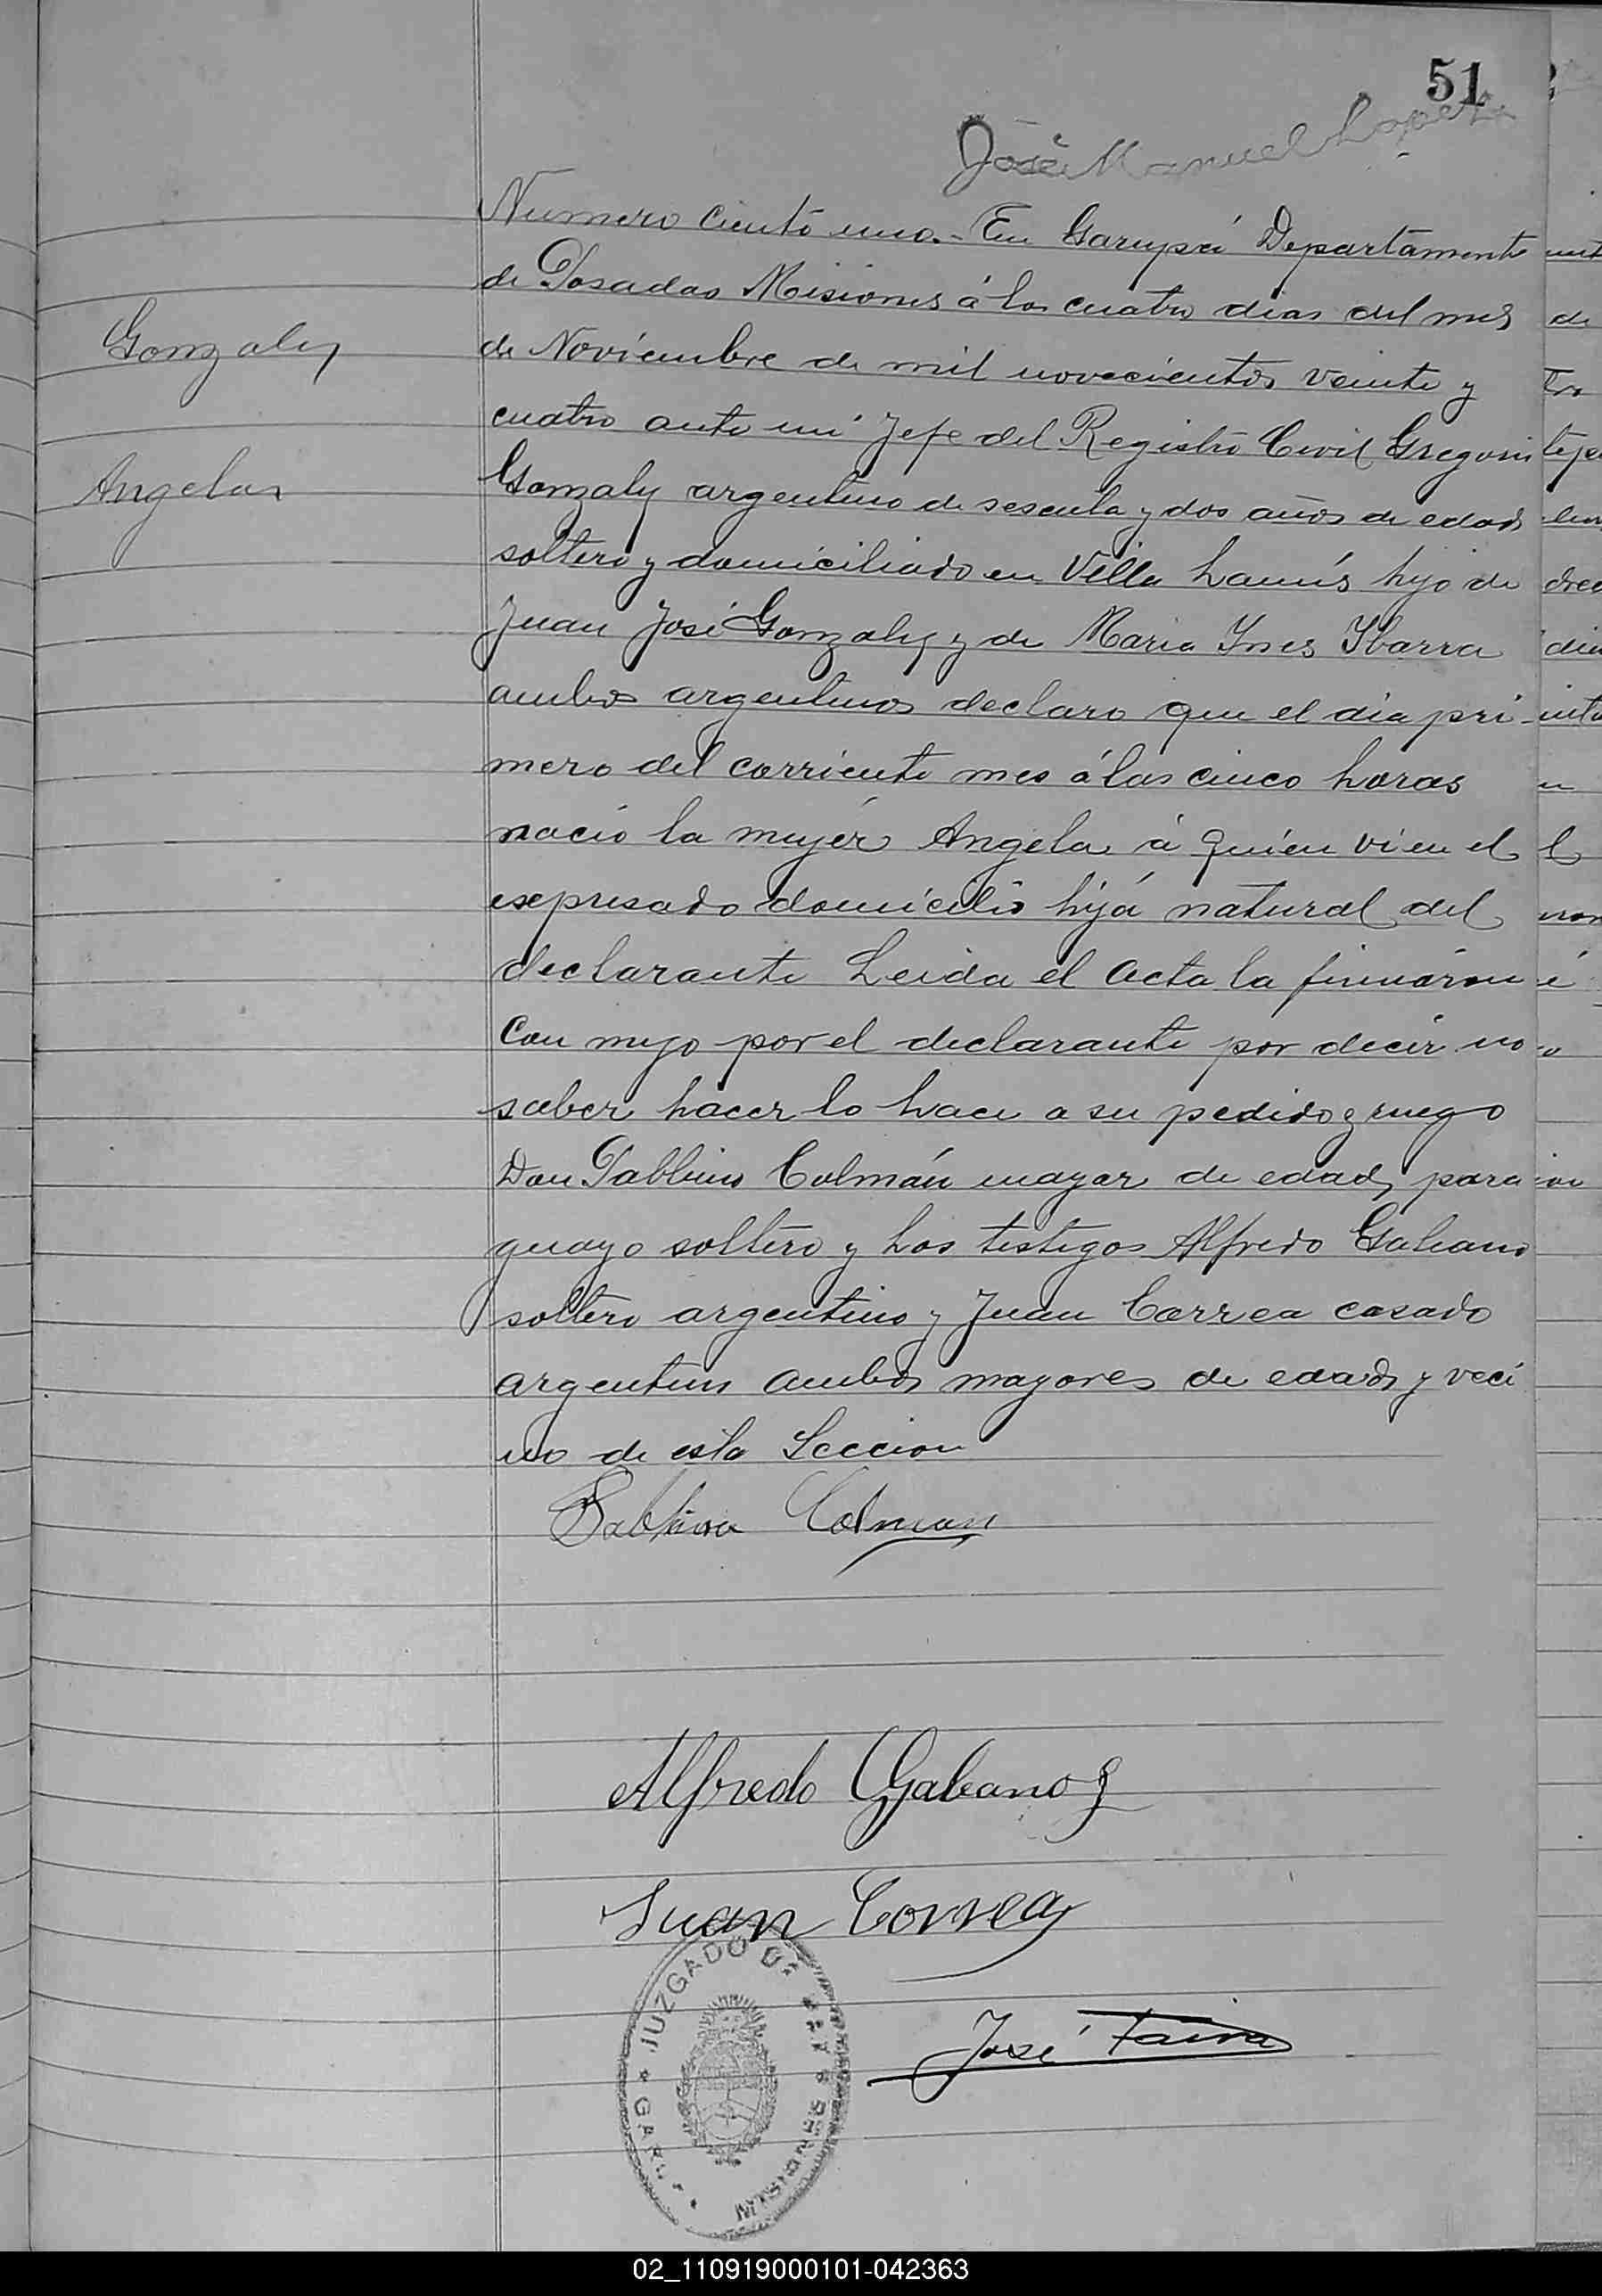 51
José Manuel Lopez
Numero ciento uno.- En Garupá Departamento
de Posadas Misiones á los cuatro dias del mes
Gonzalez
de Noviembre de mil novecientos veinte y
cuatro ante mi Jefe del Registro Civil Gregorio
Angela
Gonzalez argentino de sesenta y dos años de edad
soltero y domiciliado en Villa Lanús hijo de
Juan José Gonzalez y de Maria Ynes Ybarra
ambos argentinos declaro que el dia pri-
mero del corriente mes á las cinco horas
nació la mujer Angela á quien vi en el
expresado domicilio hija natural del
declarante Leida el acta la firmáron
con migo por el declarante por decir no
saber hacer lo hace a su pedido y ruego
Don Pablino Colmán mayor de edad, para
guayo soltero y los testigos Alfredo Galeano
soltero argentino y Juan Correa casado
argentino ambos mayores de edad y veci
no de esta Seccion
Pablino Colman
Alfredo Galeano
Juan Correa
José
JUZGADO DE
MISIONES
02_110919000101-042363